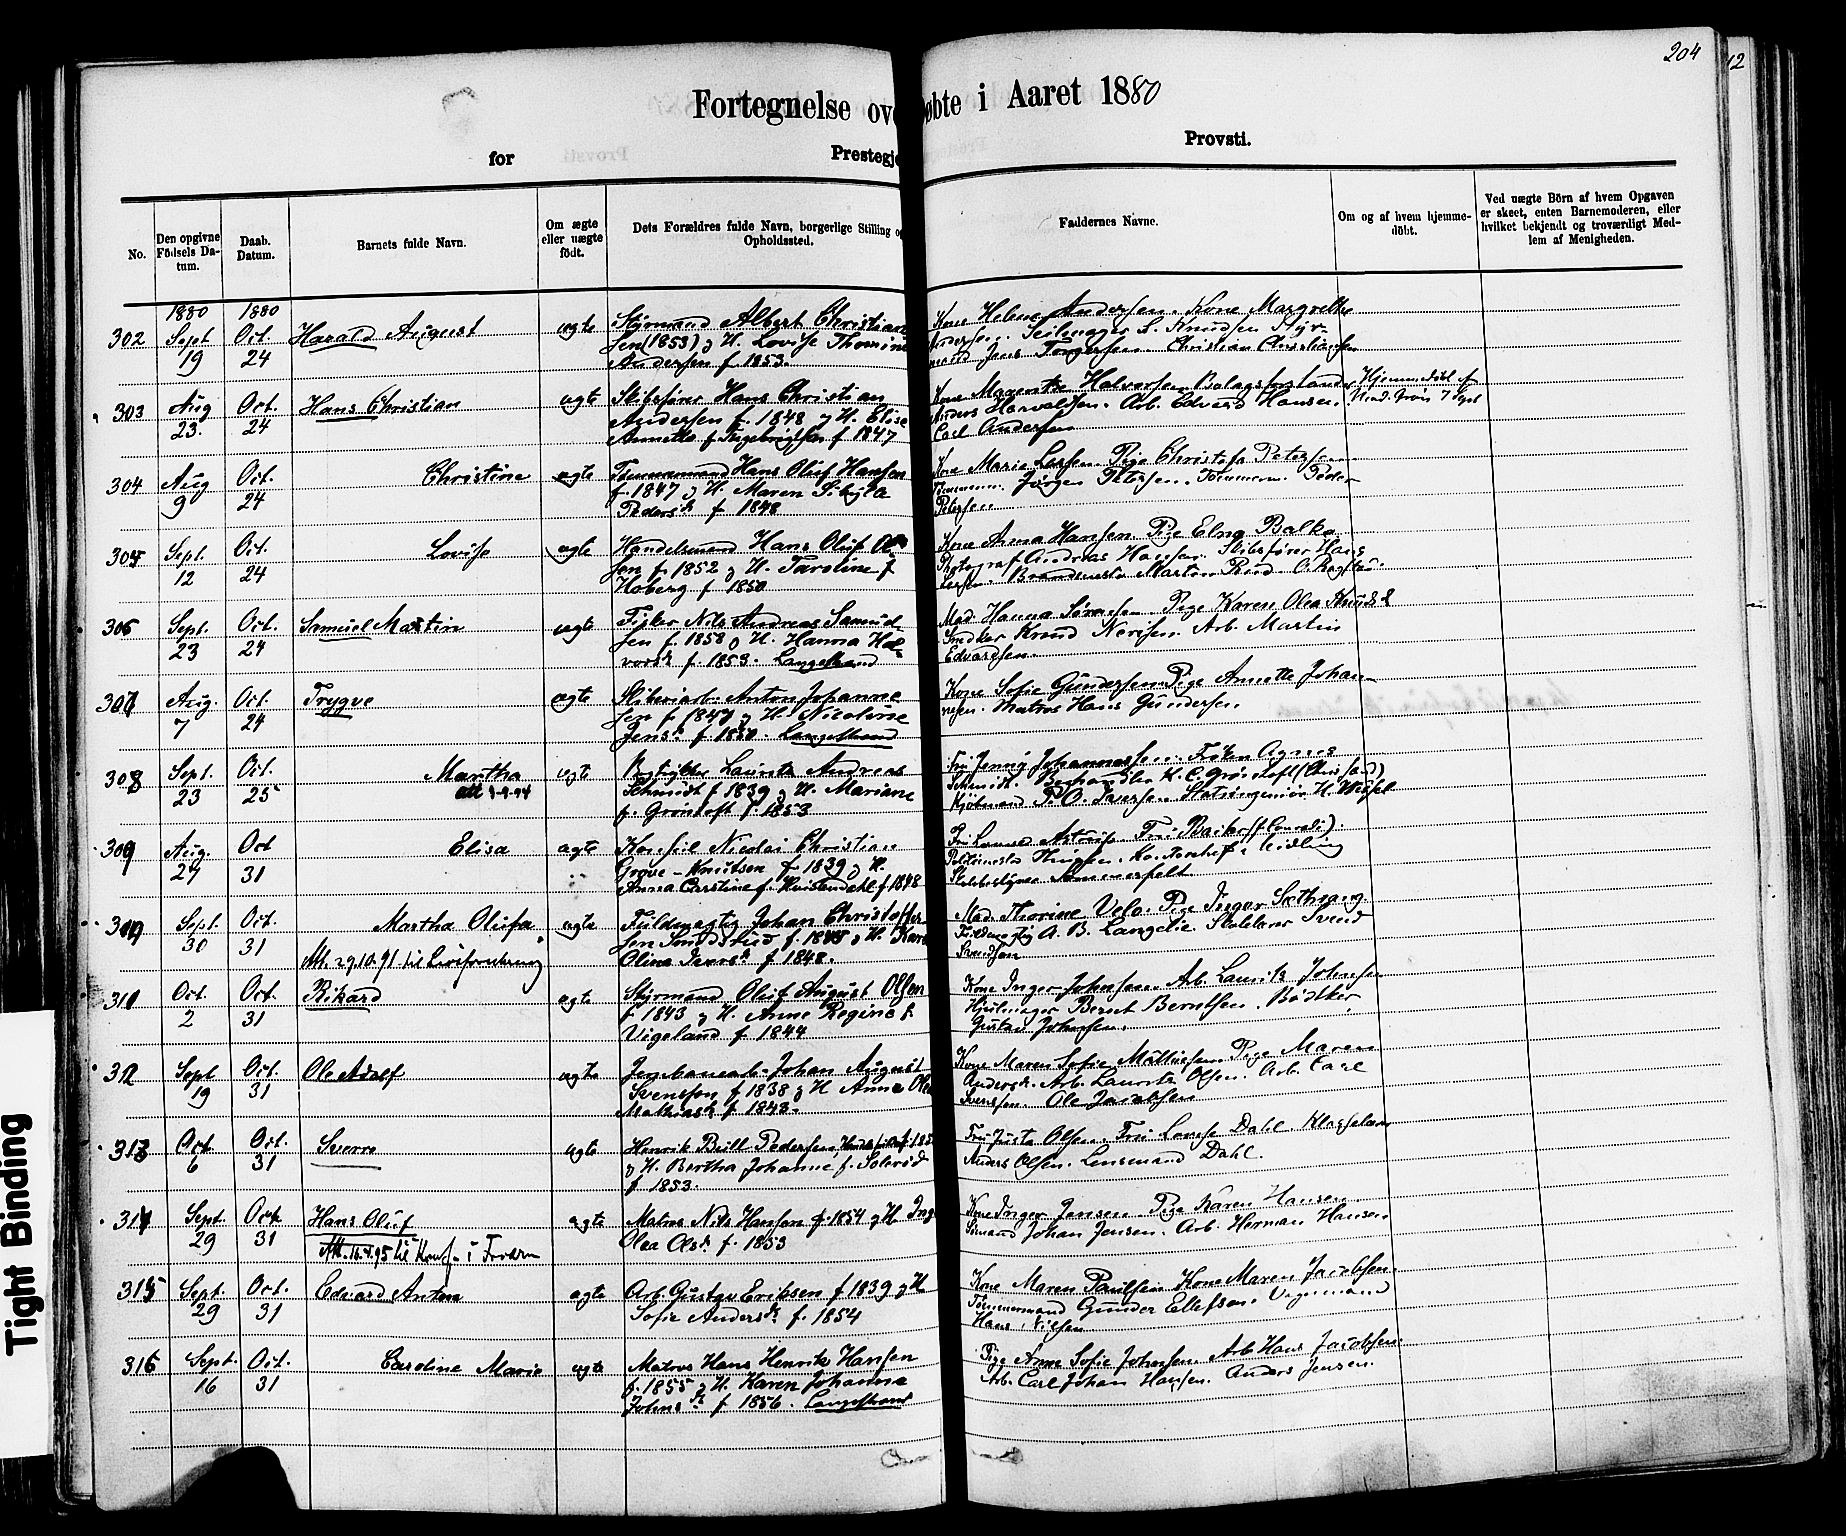 204
12
Fortegnelse ov øbte i Aaret 1880
for Prestegje Provsti.
No.
Den opgivne Födsels Da-tum.
Daab. Datum.
Barnets fulde Navn.
Om ægte eller uægte födt.
Dets Forældres fulde Navn, borgerlige Stilling og Opholdssted.
Faddernes Navne.
Om og af hvem hjemme-döbt.
Ved uægte Börn af hvem Opgaven er skeet, enten Barnemoderen, eller hvilket bekjendt og troværdigt Med-lem af Menigheden.
1880 1880
302 Sept 19 Oct. 24 Harald August ægte
Styrmand Albert Christian
sen (1853) og H. Lovise Thomine
Andersen f. 1853.
Kone Helene Andersen. Kone Margrethe
Andersen. Seilmager S. Knudsen Styr-
mand Jens Torgersen Christian Christiansen
303 Aug 23. Oct. 24 Hans Christian ægte
Skibsfører Hans Christian
Andersen f. 1848 og H. Elise
Annette f. Ingebrigtsen f 1847
Kone Margrethe Halvorsen
Anders Harvaldsen. Arb. Edvard Hansen.
Carl Andersen
Hjemmedöbt af
7 Sept
304 Aug 9 Oct. 24 Christine ægte
Tömmermand Hans Oluf Hansen
f. 1847 og H. Maren Sibylla
Pedersd. f 1848
Kone Marie Larsen Pige Christofa Petersen
Tömmerm. Jörgen Petersen. Tömmerm. Peder
Petersen
305 Sept. 12 Oct. 24 Lovise ægte
Handelsmand Hans Oluf Ol
sen f. 1852 og H. Caroline f
Hoberg f 1850
Kone Anna Hansen Pige Elna Balke
Photograf Andreas Hansen. Skibsfører Hans
Larsen. Brandmester Martin Rud
306 Sept. 23 Oct. 24 Samuel Martin ægte
Fisker Nils Andreas Samuel
sen f. 1858 og H. Hanna Hal
vorsd. f. 1853. Langestrand
Mad. Hanna Sörensen Pige Karen Olea
Snedker Knud Nerisen. Arb. Martin
Edvardsen.
307 Aug. 7 Oct. 24 Trygve ægte
Skibsarb. Anton Johanne
sen f. 1847 og H. Nicoline
Jensd. f 1850. Langestrand
Kone Sofie Gundersen Pige Annette Johan-
nesen. Matros Hans Gundersen
308 Sept. 23 Oct. 25 Martha ægte
att 1-9-94
Laurits Andreas
Schmidt f 1839 og H. Mariane
f. Gröntoft f. 1853
Fru Jenny Johannessen. Fröken Agnes
Schmidt. Boghandler H. C. Gröntoft
Kjöbmand P. O. Iversen. Statsingeniör H.
309 Aug. 27 Oct 31 Elisa ægte
Konsul Nicolai Christian
Grove-Knutsen f. 1839 og H.
Anna Carstine f. Hvistendahl f 1848
Politimester
Sommerfelt
310 Sept. 30 Oct. 31 Martha Olufa ægte
Att. 29.10.91 til Livsforsikring
Fuldmægtig Johan Christoffer
sen f. 1845 og H. Karen
Olina Iversd. f 1848.
Mad. Thorine Velo. Pige Inger
Fuldmægtig A. B. Langelie. Skolelærer Svend
Svendsen
311 Oct. 2 Oct. 31 Rikard ægte
Styrmand Oluf August Olsen
f. 1843 og H. Anne Regine f.
Vigeland f 1844
Kone Inger Johnsen. Arb. Laurits Johnsen
Hjulmager Bernt Berntsen. Bödtker
Gustav Johnsen.
312 Sept 19 Oct. 31 Ole Adolf ægte
Jernbanearb. Johan August
Svensson f 1838 og H Anna Olea
Mathiasd. f. 1843.
Kone Maren Sofie Mathiesen Pige Maren
Andersd. Arb. Laurits Olsen. Arb. Carl
Svensson. Ole Jacobsen
313 Oct. 6 Oct. 31 Sverre ægte
Henrik Brill Pedersen
og H. Bertha Johanne f. Solerød
f 1853.
Fru Justa Olsen. Fru Lovise Dahl. Kirkesanger
Anders Olsen. Lensmand Dahl.
314 Sept. 29 Oct. 31 Hans Oluf ægte
Att. 16.4.95 til Konf. i
Matros Nils Hansen f. 1854 og H Inge
Olea Olsd. f. 1853
Kone Inger Jensen Pige Karen Hansen.
Sömand Johan Jensen. Arb. Herman Hansen
315 Sept. 29 Oct. 31 Edvard Anton ægte
Arb. Gustav Eriksen f 1839 og H
Sofie Andersd. f. 1854
Kone Maren Paulsen Kone Maren Jacobsen.
Tömmermand Gunder Ellefsen. Vognmand
Hans Nilsen
316 Sept. 16 Oct. 31 Caroline Marie ægte
Matros Hans Henrik Hansen
f. 1855 og H. Karen Johanne
Johnsd. f 1856. Langestrand
Pige Anne Sofie Johnsen. Arb Hans Jacobsen.
Arb. Carl Johan Hansen. Anders Jensen.
Tight Binding